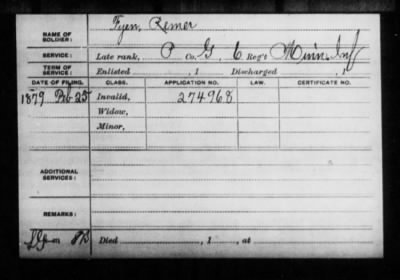 NAME OF SOLDIER: Fyen, Remer
SERVICE: Late rank, P Co. G, 6 Reg't Minn Inf
TERM OF SERVICE: Enlisted , 1 Discharged , 1
DATE OF FILING. CLASS. APPLICATION NO. LAW. CERTIFICATE NO.
1879 Feb 25 Invalid, 274968
Widow,
Minor,
ADDITIONAL SERVICES:
REMARKS:
Died , 1 , at